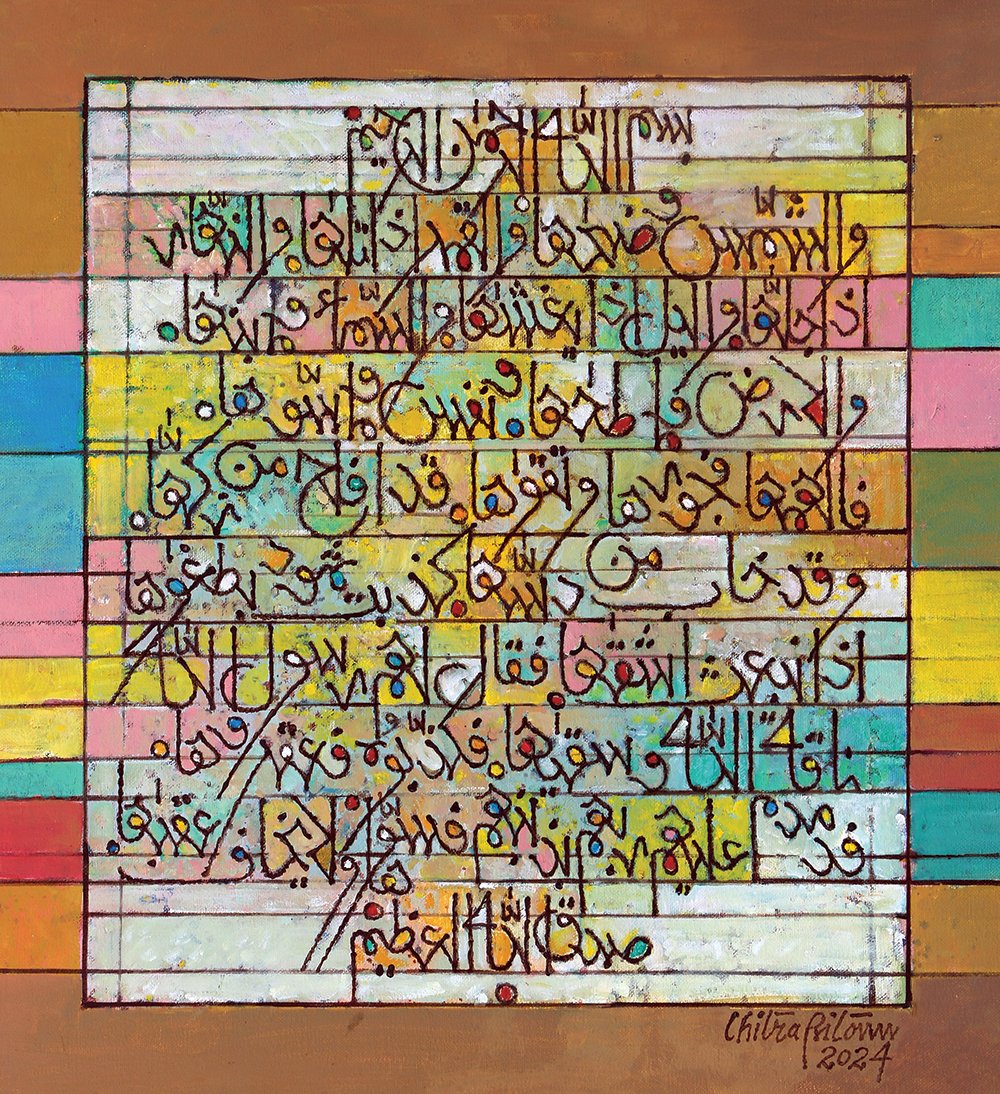 بسم الله الرحمن الرحيم
والشمس وضحها والقمر اذا تلها والنهار
اذا جلها واليل اذا يغشها والسماء وما بنها
والارض وما طحها ونفس وما سوها
فالهمها فجورها وتقوها قد افلح من زكها
وقد خاب من دسها كذبت ثمود بطغوها
اذ انبعث اشقها فقال لهم رسول الله
ناقة الله وسقيها فكذبوه فعقروها
فدمدم عليهم ربهم بذنبهم فسوها ولا يخاف عقبها
صدق الله العظيم
2024